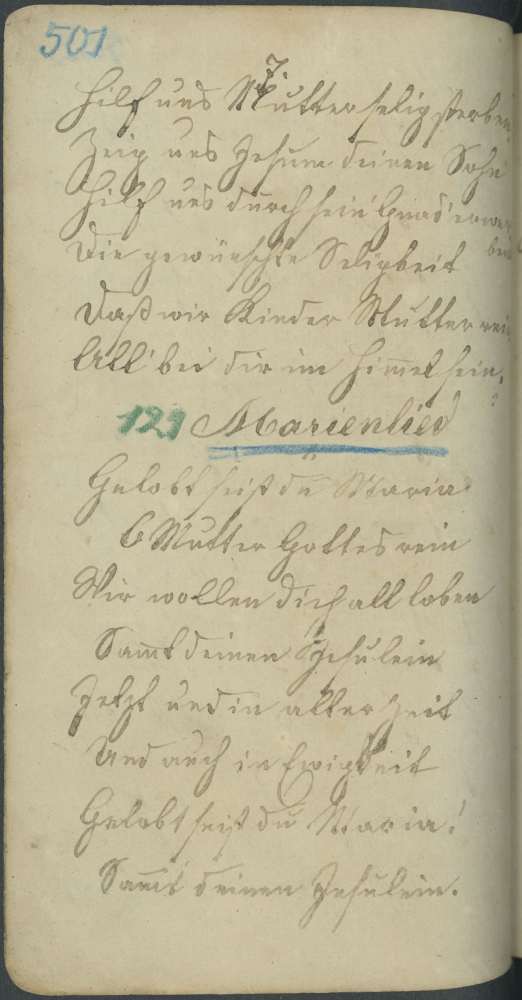 501
7.
Hilf uns Mutter selig sterben
Zeig uns Jesum deinen Sohn
Hilf uns durch sein Gnad' erwer
ben
Die gewünschte Seligkeit
Daß wir Kinder Mutter rein
All' bei dir im Himmel sein.
129 Marienlied
Gelobt seist du Maria
O Mutter Gottes rein
Wir wollen dich all loben
Sammt deinen Jesulein
Jetzt und in aller Zeit
Und auch in Ewigkeit
Gelobt seist du Maria!
Sammt deinen Jesulein.